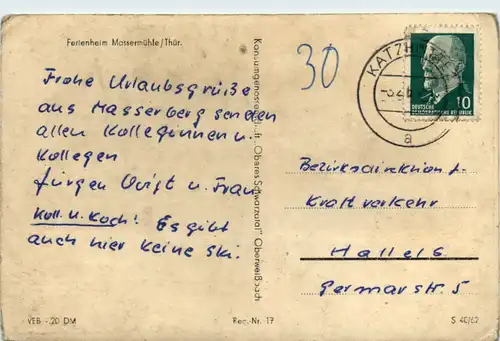 Ferienheim Massermühle/Thür.
30
Frohe Urlaubsgrüße
aus Masserberg senden
allen Kolleginnen u.
Kollegen
Jürgen Voigt u. Frau
Koll. u. Koch! Es gibt
auch hier keine Ski.
VEB - 20 DM
Reg.-Nr. 17
Konsumgenossensch. „Oberes Schwarzatal" Oberweißbach
KATZH
a
DEUTSCHE
DEMOKRATISCHE REPUBLIK
10
Bezirksdirektion f.
Kraftverkehr
Halle
Germarstr. 5
S 40/62